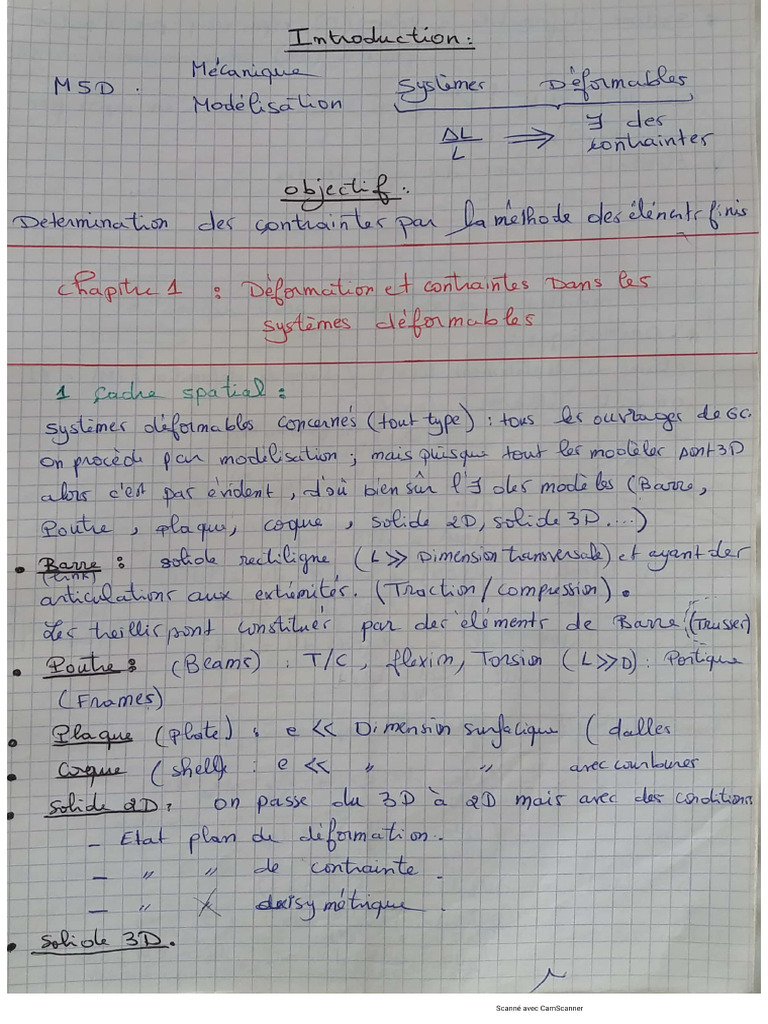 Introduction:
MSD. Mécanique Systèmes Déformables
Modélisation
ΔL/L ⟹ ∃ des contraintes
objectif:
Determination des contraintes par la méthode des éléments finis
Chapitre 1 : Déformation et contraintes Dans les
systèmes déformables
1 Cadre spatial:
systèmes déformables concernés (tout type) : tous les ouvrages de GC.
on procède par modélisation ; mais puisque tout les modèles sont 3D
alors c'est pas évident, d'où bien sûr l'∃ des modèles (Barre,
Poutre, plaque, coque, solide 2D, solide 3D....)
• Barre : solide rectiligne (L >> Dimension transversale) et ayant des
(Link)
articulations aux extrémités. (Traction/compression).
Les treillis sont constitués par des éléments de Barre. (Trusses)
• Poutre : (Beams) : T/C, flexion, Torsion (L>>D) : Portique
(Frames)
• Plaque (plate) : e << Dimension surfacique (dalles
• Coque (shell) : e << " " avec courbures
• Solide 2D: on passe du 3D à 2D mais avec des conditions
- Etat plan de déformation.
- " " de contrainte.
- " axisymétrique.
• Solide 3D.
Scanné avec CamScanner